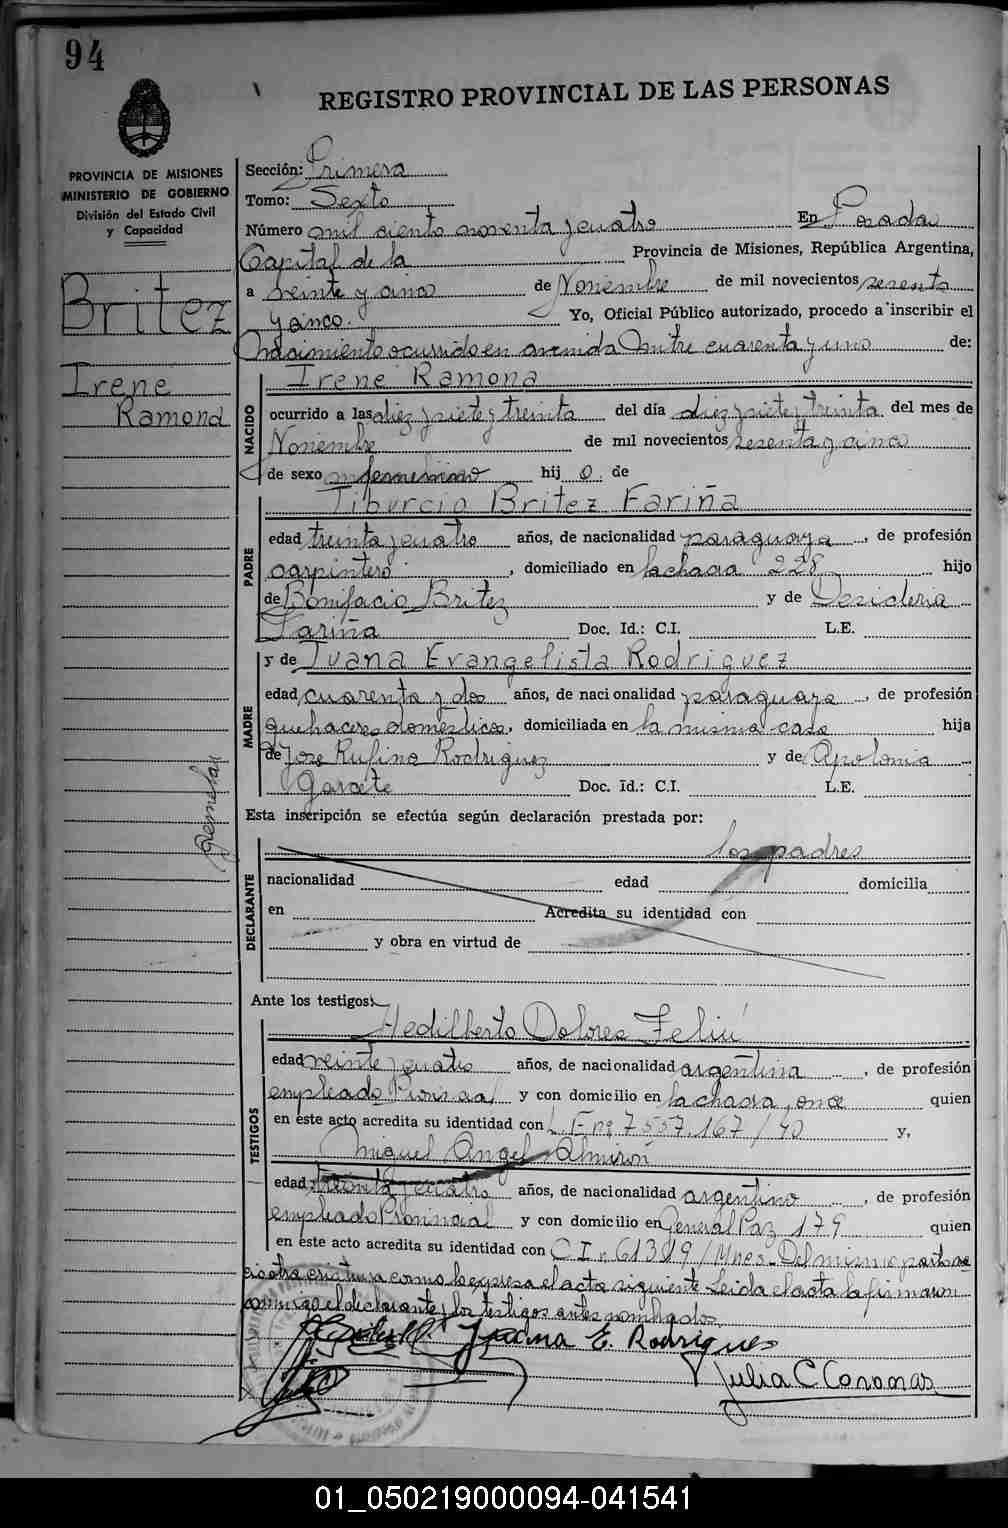 94
REGISTRO PROVINCIAL DE LAS PERSONAS
PROVINCIA DE MISIONES
MINISTERIO DE GOBIERNO
División del Estado Civil
y Capacidad
Britez
Irene
Ramona
gemelar
Sección: Primera
Tomo: Sexto
Número mil ciento noventa y cuatro En Posadas
Capital de la Provincia de Misiones, República Argentina,
a veinte y cinco de Noviembre de mil novecientos sesenta
y cinco. Yo, Oficial Público autorizado, procedo a inscribir el
Nacimiento ocurrido en avenida Mitre cuarenta y uno de:
NACIDO
Irene Ramona
ocurrido a las diez y siete y treinta del día diez y siete y treinta del mes de
Noviembre de mil novecientos sesenta y cinco
de sexo femenino hij o de
PADRE
Tiburcio Britez Fariña
edad treinta y cuatro años, de nacionalidad paraguaya, de profesión
carpintero, domiciliado en la chacra 228 hijo
de Bonifacio Britez y de Desideria
Fariña Doc. Id.: C.I. L.E.
MADRE
y de Juana Evangelista Rodriguez
edad cuarenta y dos años, de nacionalidad paraguaya, de profesión
quehaceres domésticos, domiciliada en la misma casa hija
de Jose Rufino Rodriguez y de Apolonia
Garcete Doc. Id.: C.I. L.E.
Esta inscripción se efectúa según declaración prestada por:
los padres
DECLARANTE
nacionalidad edad domicilia
en Acredita su identidad con
y obra en virtud de
Ante los testigos:
TESTIGOS
Hedilberto Dolores Feliú
edad veinte y cuatro años, de nacionalidad argentina, de profesión
empleado Provincial y con domicilio en la chacra once quien
en este acto acredita su identidad con L. E nº 7.557.167/40 y,
Miguel Angel Almirón
edad treinta y cuatro años, de nacionalidad argentino, de profesión
empleado Provincial y con domicilio en General Paz 179 quien
en este acto acredita su identidad con C.I. n. 61319/Mnes. Del mismo parto na
cio otra criatura como lo expresa el acta siguiente Leida el acta la firmaron
conmigo el declarante y los testigos antes nombrados
Juana E. Rodrigues
Julia C Coronas
01_050219000094-041541